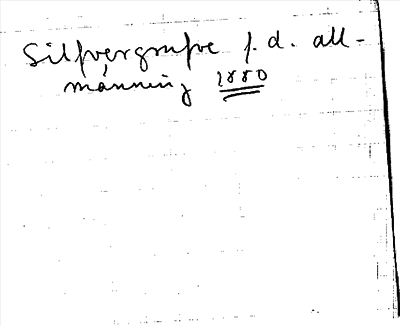 Silfvergrufve f. d. all-
männing 1880